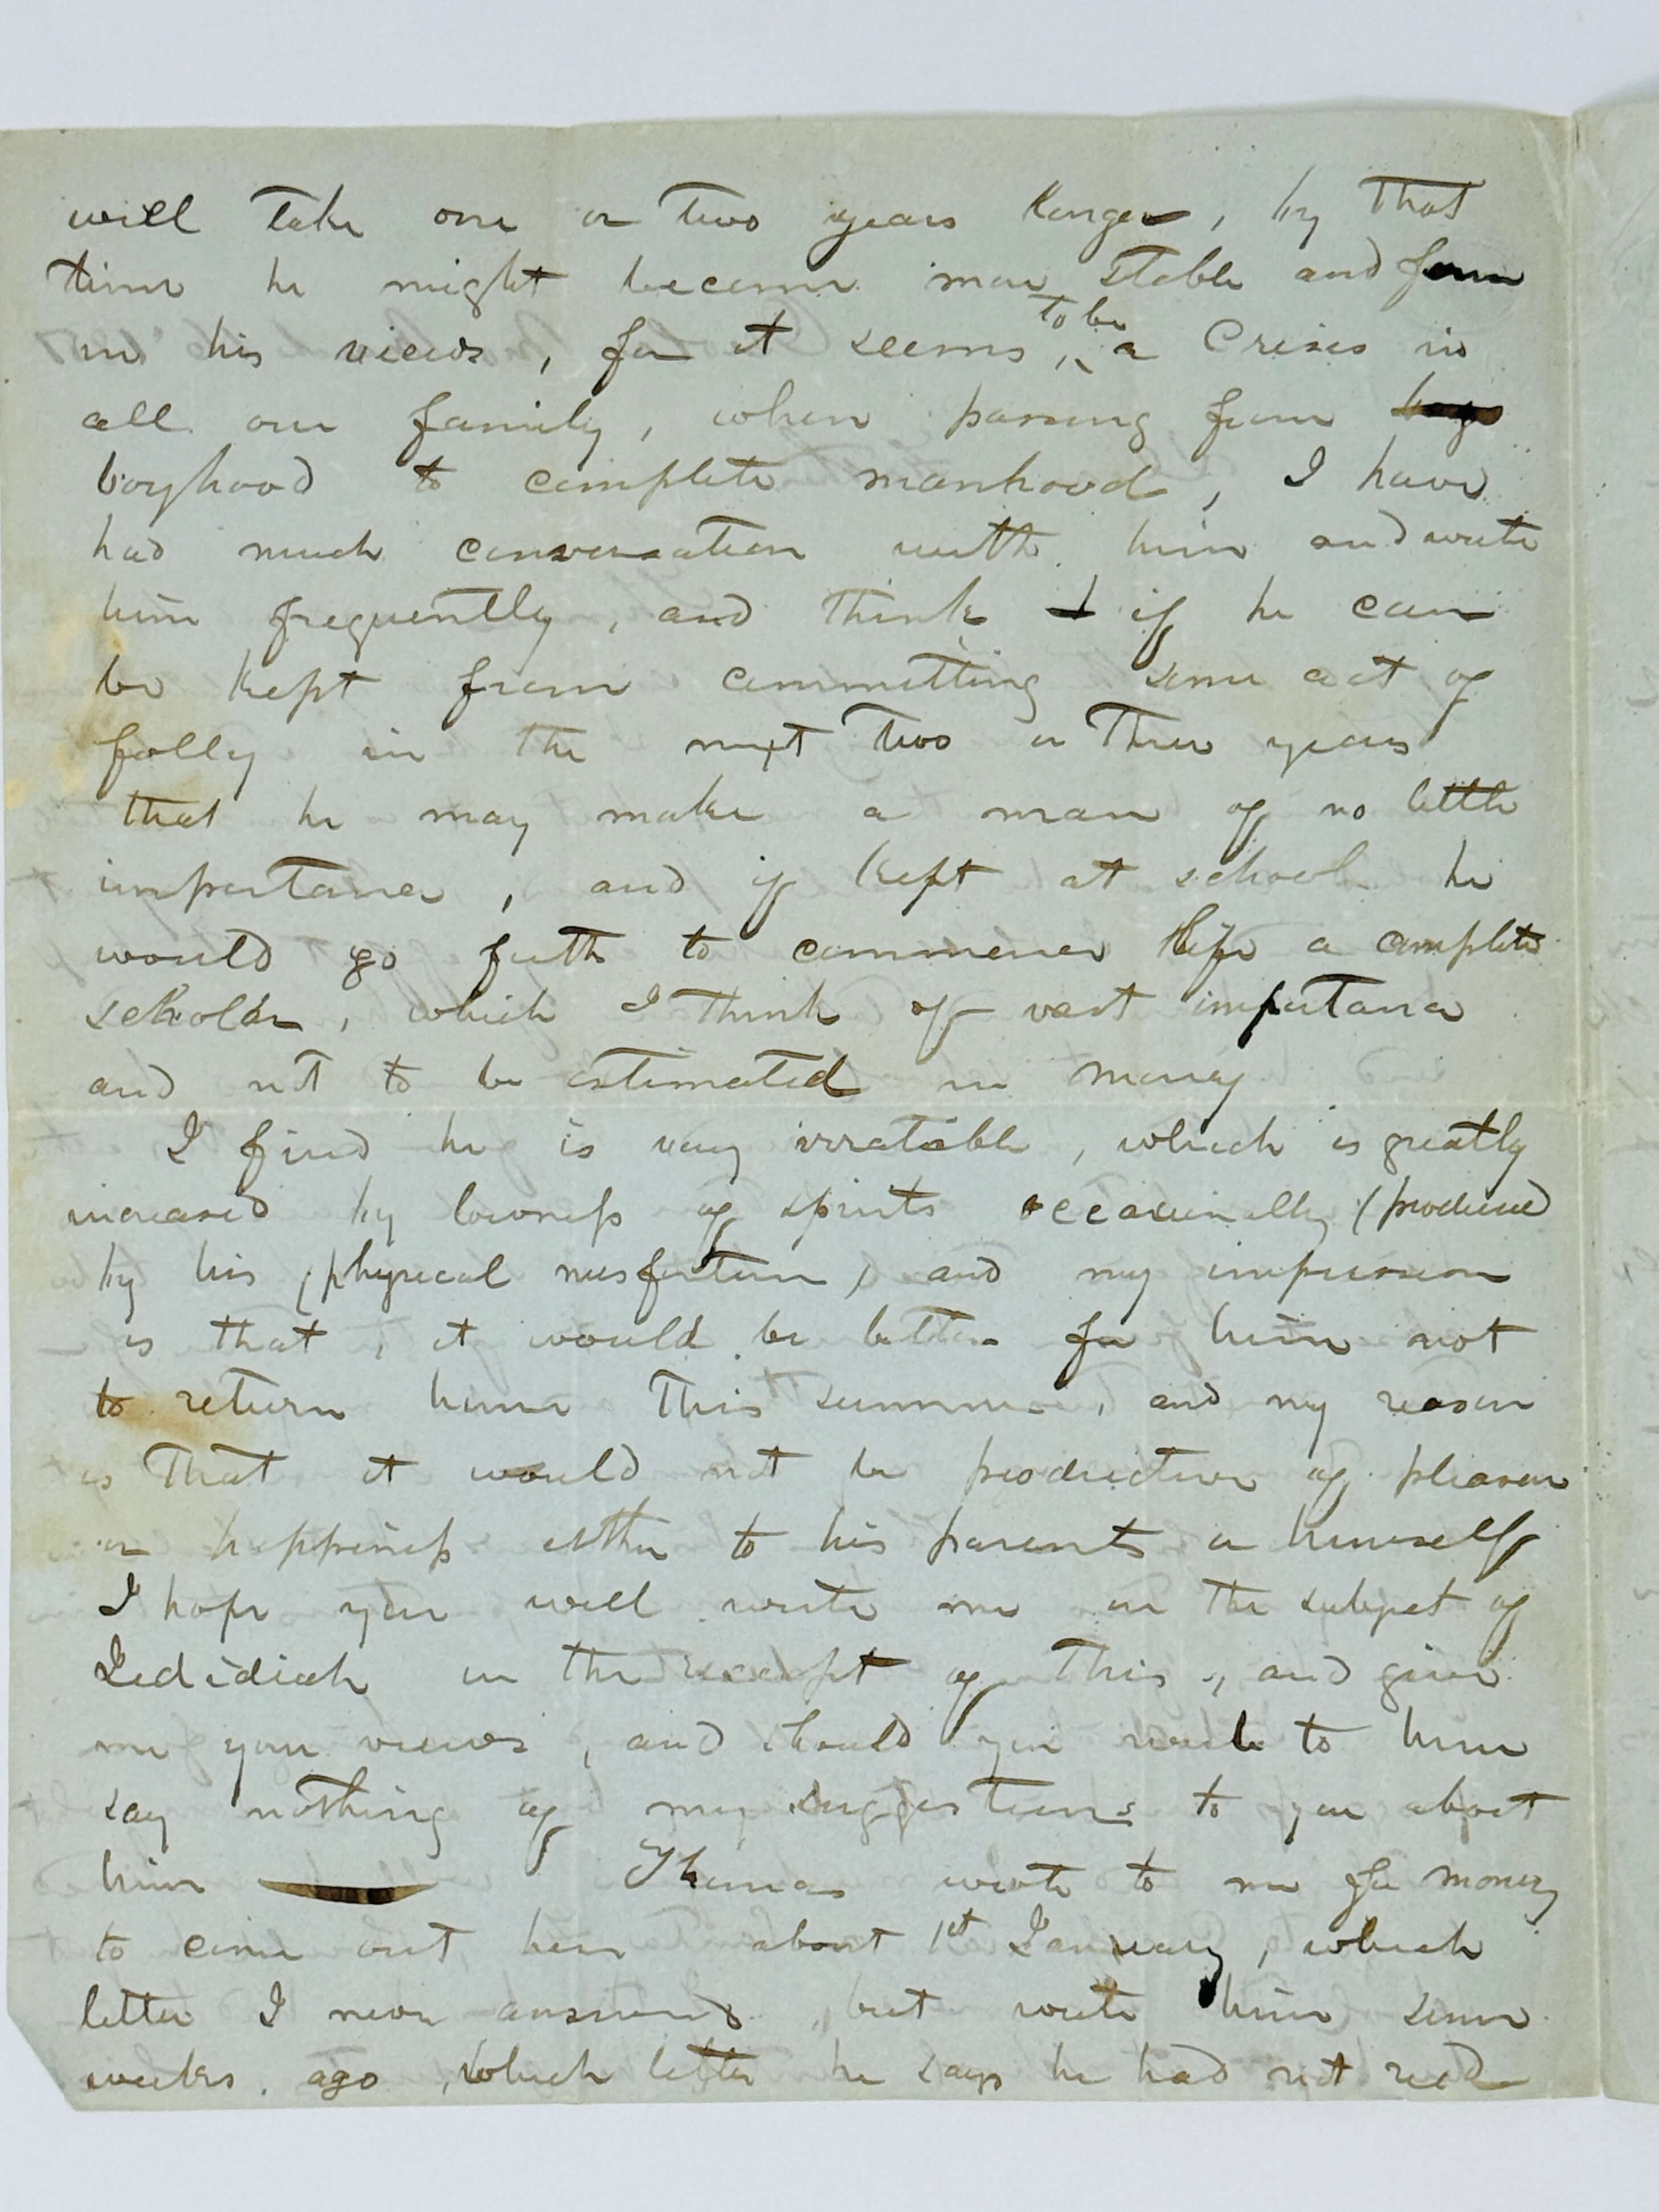 will take one or two years longer, by that
time he might become more stable and form
in his views, for it seems, to be a Crisis in
all our family, when passing from boys
boyhood to complete manhood, I have
had much conversation with him and write
him frequently, and think I if he can
be kept from committing some act of
folly in the next two or three years
that he may make a man of no little
importance, and if kept at school he
would go forth to commence life a complete
scholar, which I think of vast importance
and not to be estimated in money
I find he is very irratable, which is greatly
increased by lowness of spirits occasionally (produced
by his physical misfortune) and my impression
is that, it would be better for him not
to return home this summer, and my reason
is that it would not be productive of pleasure
or happiness either to his parents or himself
I hope you will write me on the subject of
Jedidiah on the receipt of this, and give
me your views, and should you write to him
say nothing of my suggestions to you about
him Thomas wrote to me for money
to come out here about 1st January, which
letter I never answered, but wrote him some
weeks ago, which letter he says he had not recd